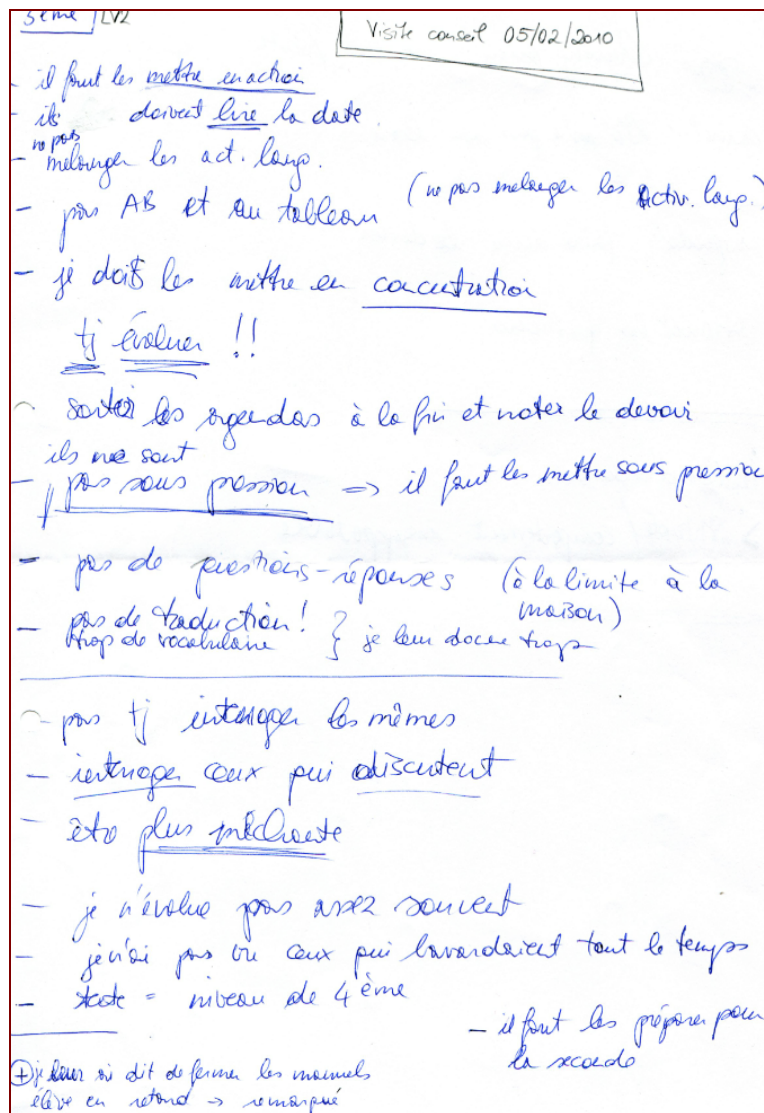 3ème LV2
Visite conseil 05/02/2010
- il faut les mettre en action
- ils doivent lire la date
ne pas
- mélanger les act. lang.
- pas AB et au tableau (ne pas mélanger les activ. lang.)
- je doit les mettre en concentration
tj évaluer !!
sortir les agendas à la fin et noter le devoir
ils ne sont
- pas sous pression => il faut les mettre sous pression
- pas de questions-réponses (à la limite à la
maison)
- pas de traduction!
trop de vocabulaire } je leur donne trop
- pas tj interroger les mêmes
- interroger ceux qui discutent
- être plus méchante
- je n'évalue pas assez souvent
- je n'ai pas vu ceux qui bavardaient tout le temps
- texte = niveau de 4ème
- il faut les préparer pour
la seconde
+ je leur ai dit de fermer les manuels
élève en retard -> remarqué